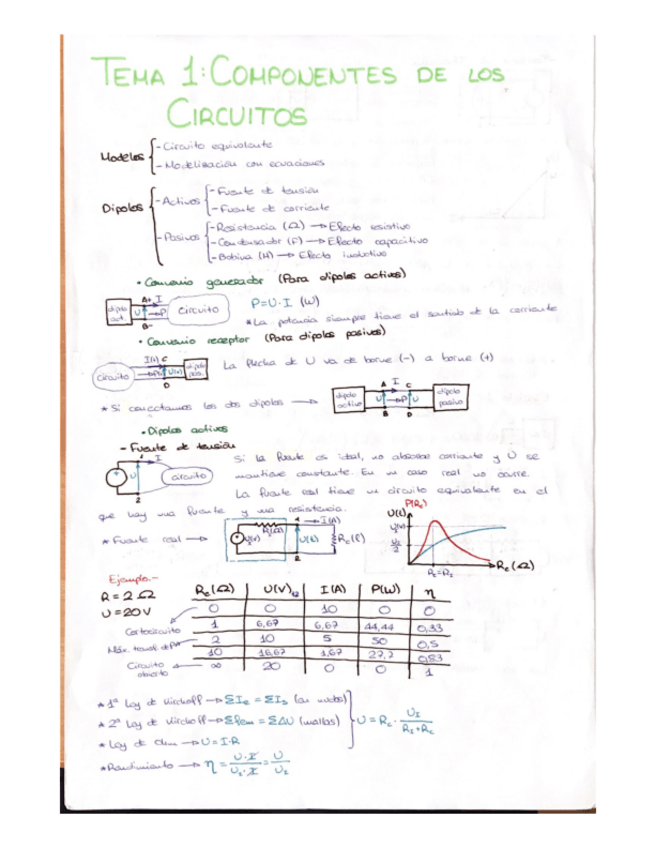 TEMA 1: COMPONENTES DE LOS
CIRCUITOS
Modelos
- Circuito equivalente
- Modelización con ecuaciones
Dipolos
- Activos
- Fuente de tensión
- Fuente de corriente
- Pasivos
- Resistencia (Ω) → Efecto resistivo
- Condensador (F) → Efecto capacitivo
- Bobina (H) → Efecto inductivo
• Convenio generador (Para dipolos activos)
dipolo act. A+ I U P B- Circuito
P=U·I (W)
* La potencia siempre tiene el sentido de la corriente
• Convenio receptor (Para dipolos pasivos)
circuito I(t) C U(t) D dipolo pas.
La flecha de U va de borne (-) a borne (+)
* Si conectamos los dos dipolos →
dipolo activo A I C U P U B D dipolo pasivo
• Dipolos activos
- Fuente de tensión
I U 2 circuito
Si la fuente es ideal, no absorbe corriente y U se
mantiene constante. En un caso real no ocurre.
La fuente real tiene un circuito equivalente en el
que hay una fuente y una resistencia.
* Fuente real →
I(A) Rc(Ω)
U(V) P(Rc) Rc=Ri Rc(Ω)
Ejemplo.-
R = 2 Ω
U = 20V
Rc(Ω) U(V)12 I(A) P(W) η
0 0 10 0 0
Cortocircuito
1 6,67 6,67 44,44 0,33
2 10 5 50 0,5
Máx. transf. de P
10 16,67 1,67 27,7 0,83
Circuito abierto
∞ 20 0 0 1
* 1ª Ley de Kirchoff → ΣIe = ΣIs (en nudos)
* 2ª Ley de Kirchoff → Σfem = ΣΔU (mallas)
U = Rc · UI / RI+Rc
* Ley de Ohm → U = I·R
* Rendimiento → η = U·I / UI·I = U / UI